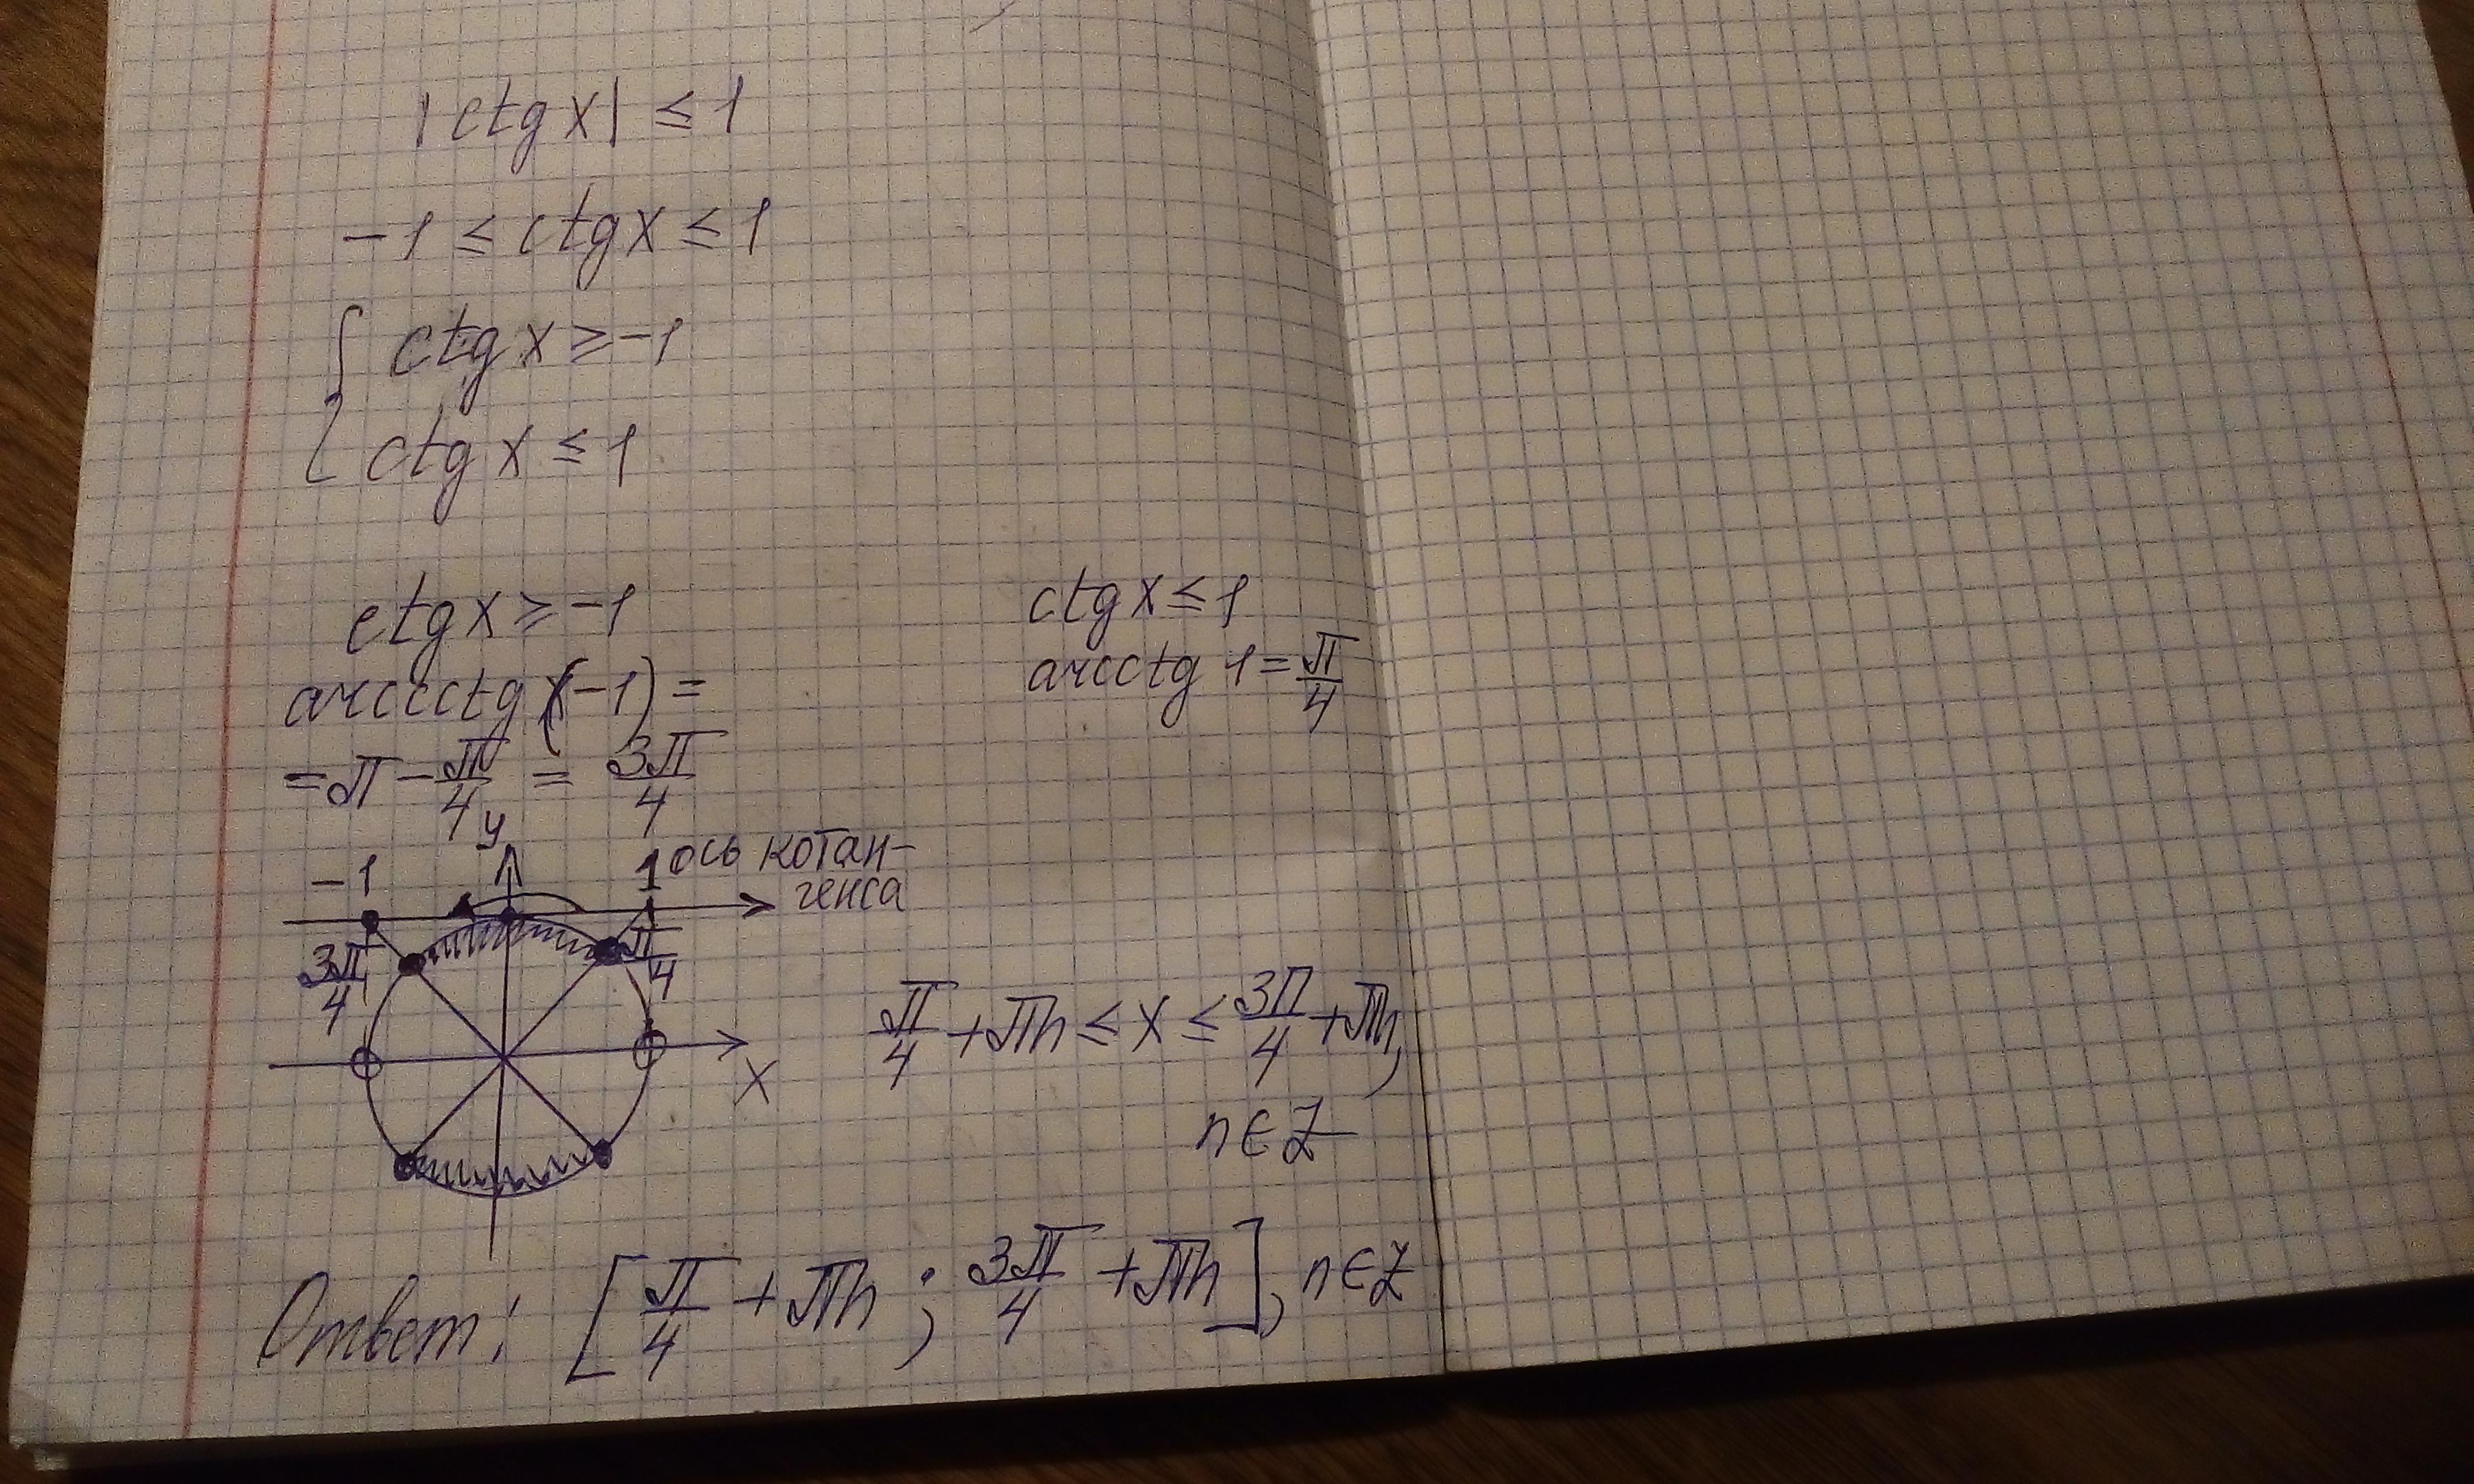 |ctg x| ≤ 1
-1 ≤ ctg x ≤ 1
{ ctg x ≥ -1
ctg x ≤ 1
ctg x ≥ -1
arccctg (-1) =
= π - π/4 = 3π/4
ctg x ≤ 1
arcctg 1 = π/4
y
-1
1
ось котан-
генса
3π/4
π/4
x
π/4 + πn ≤ x ≤ 3π/4 + πn,
n ∈ Z
Ответ: [π/4 + πn ; 3π/4 + πn], n ∈ Z